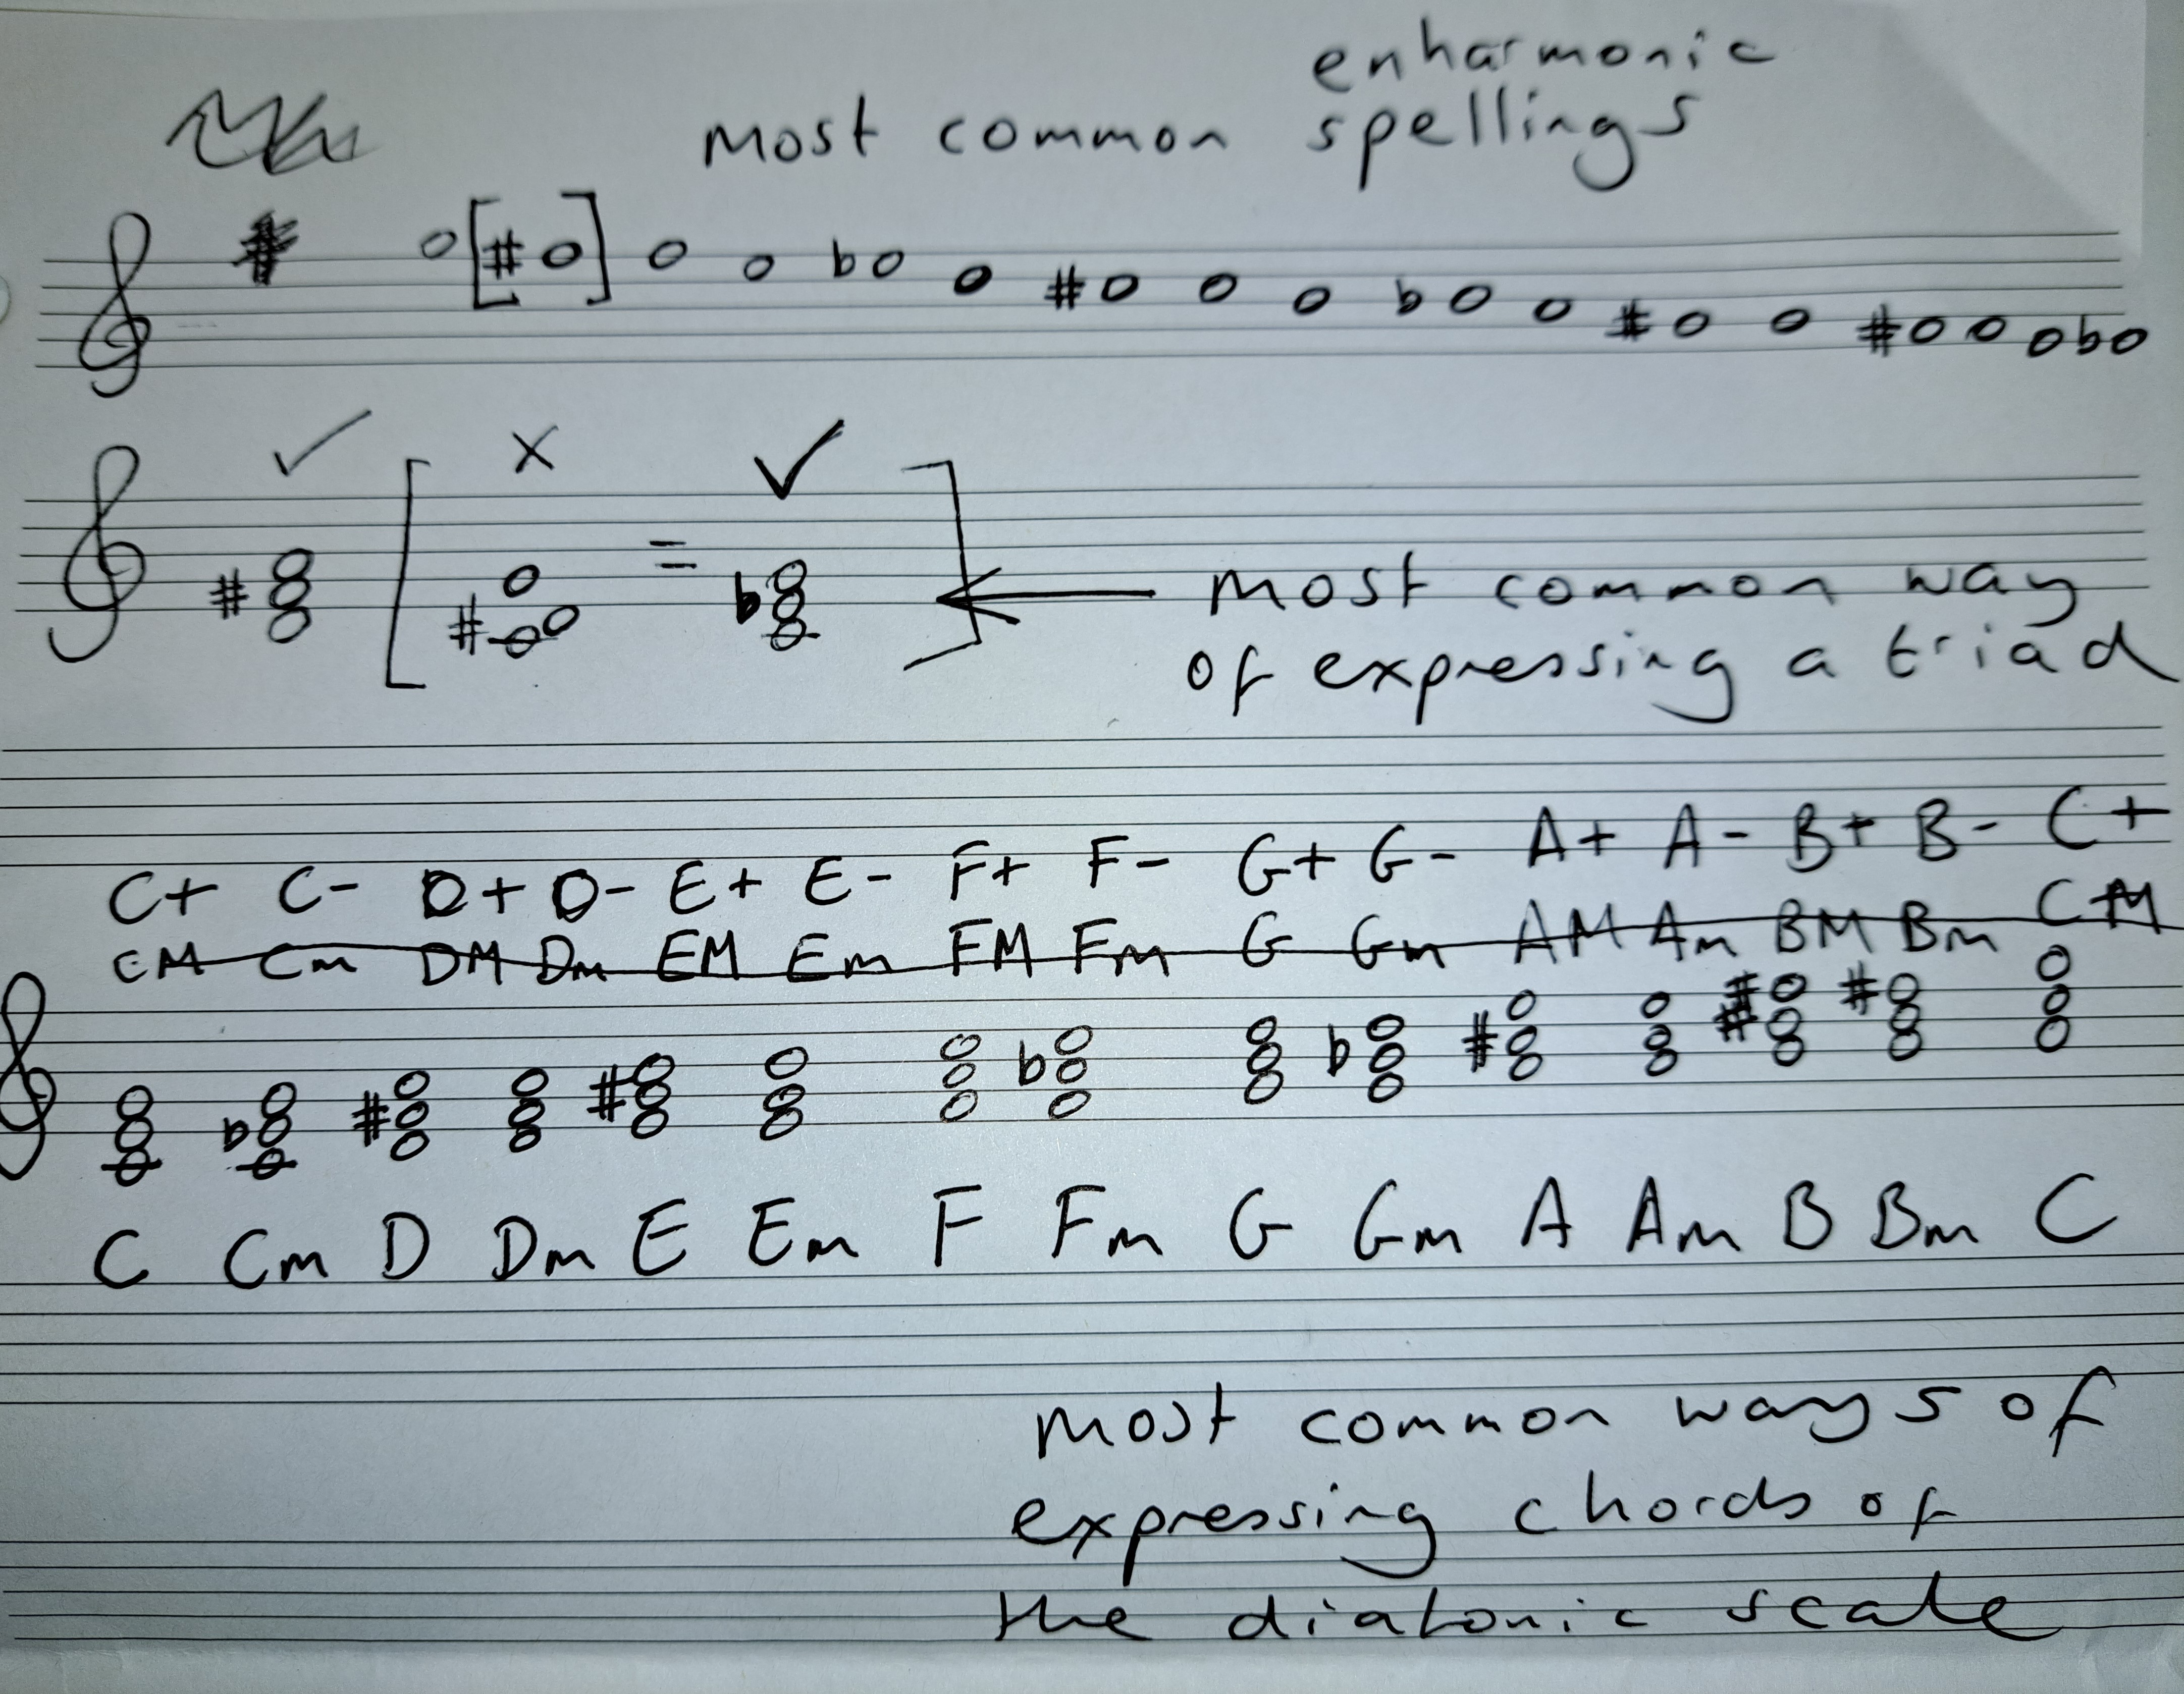 enharmonic
most common spellings
✓ x ✓
=
most common way
of expressing a triad
C+ C- D+ D- E+ E- F+ F- G+ G- A+ A- B+ B- C+
CM Cm DM Dm EM Em FM Fm G Gm AM Am BM Bm CM
C Cm D Dm E Em F Fm G Gm A Am B Bm C
most common ways of
expressing chords of
the diatonic scale